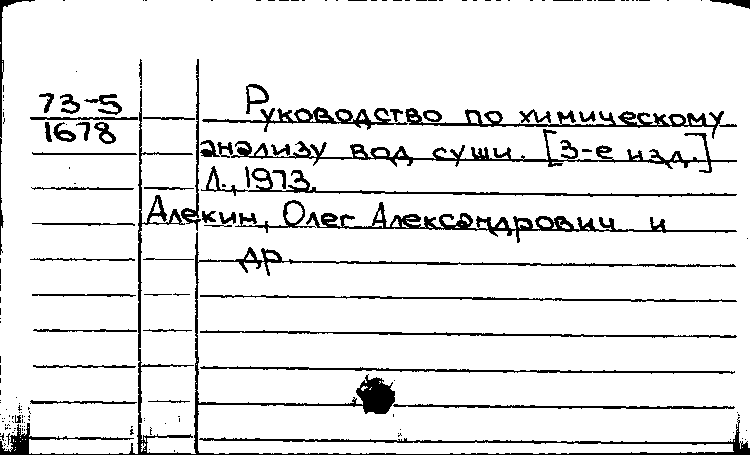 73-5
1678
Руководство по химическому
анализу вод суши. [3-е изд.]
Л., 1973.
Алекин, Олег Александрович и
др.